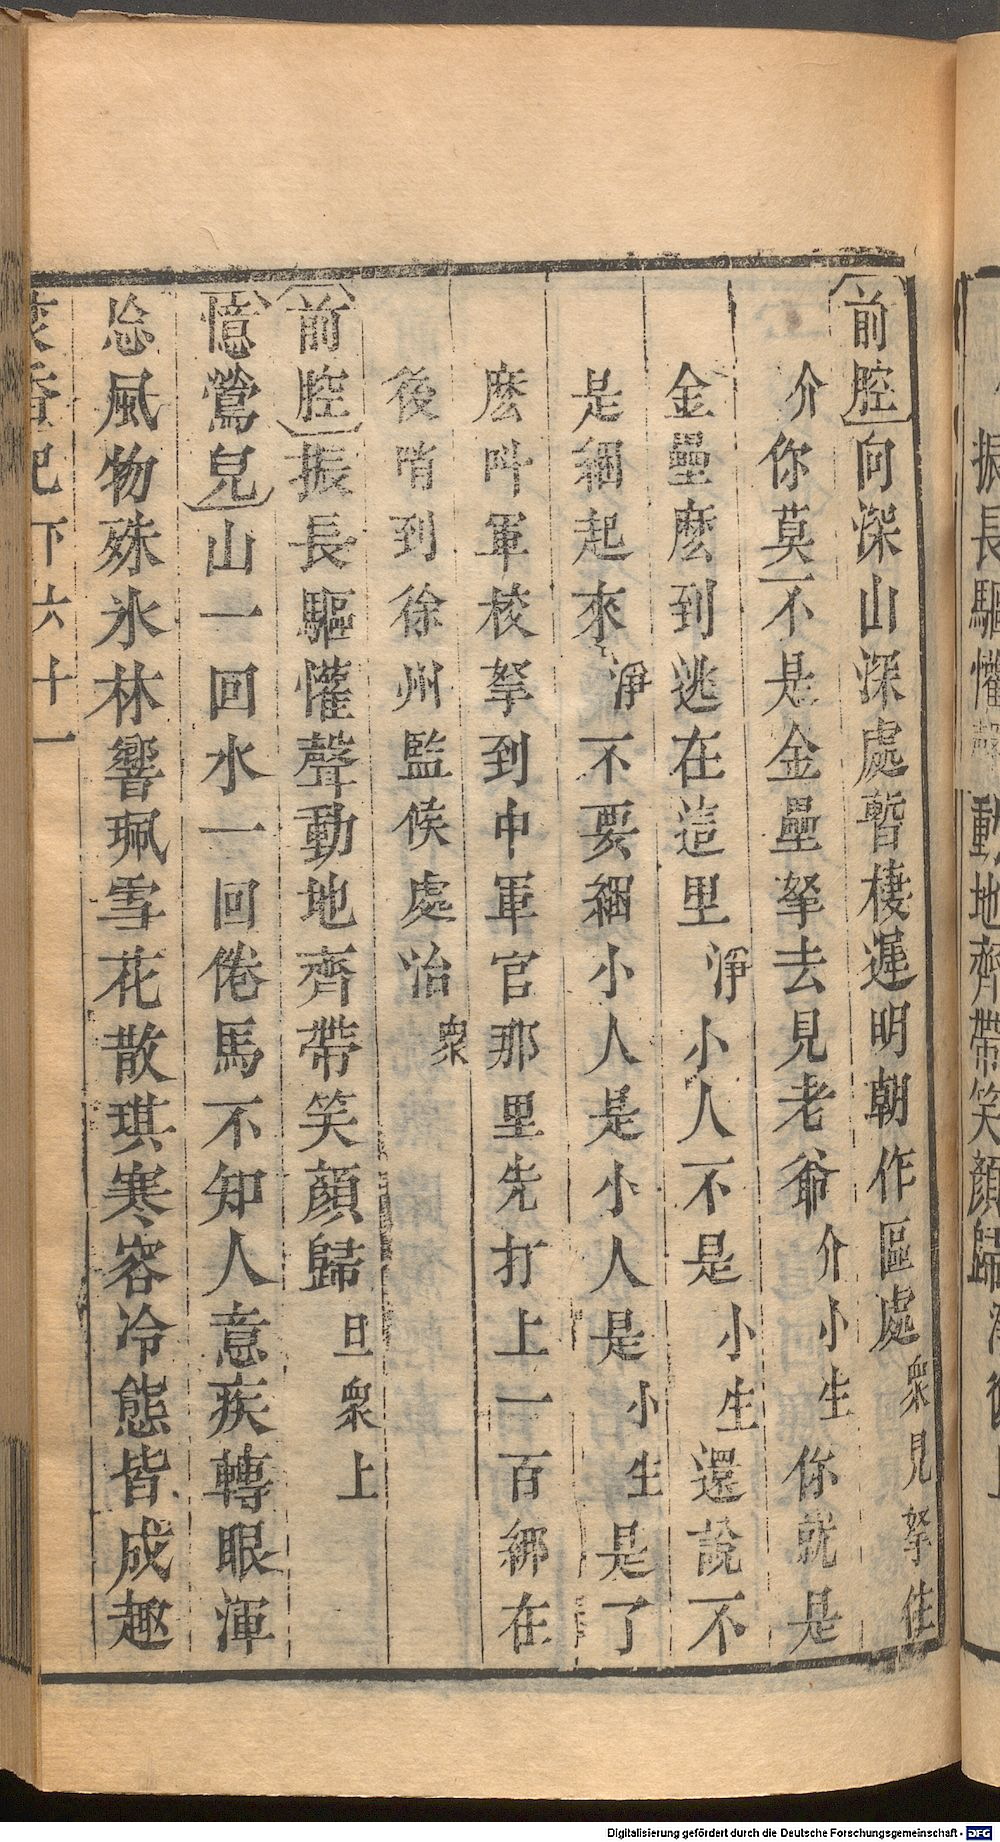 振長驅懽聲動地齊帶笑顏歸淨
前腔向深山深處暫棲遲明朝作區處衆見拏住
介你莫不是金壘拏去見老爺介小生你就是
金壘麽到逃在這里淨小人不是小生還說不
是綑起來淨不要綑小人是小人是小生是了
麽呌軍校拏到中軍官那里先打上一百綁在
後哨到徐州監候處治衆
前腔振長驅懽聲動地齊帶笑顏歸旦衆上
憶鶯兒山一回水一回倦馬不知人意疾轉眼渾
忩風物殊氷林響珮雪花散琪寒容冷態皆成趣
懷香記下六十一
Digitalisierung gefördert durch die Deutsche Forschungsgemeinschaft - DFG